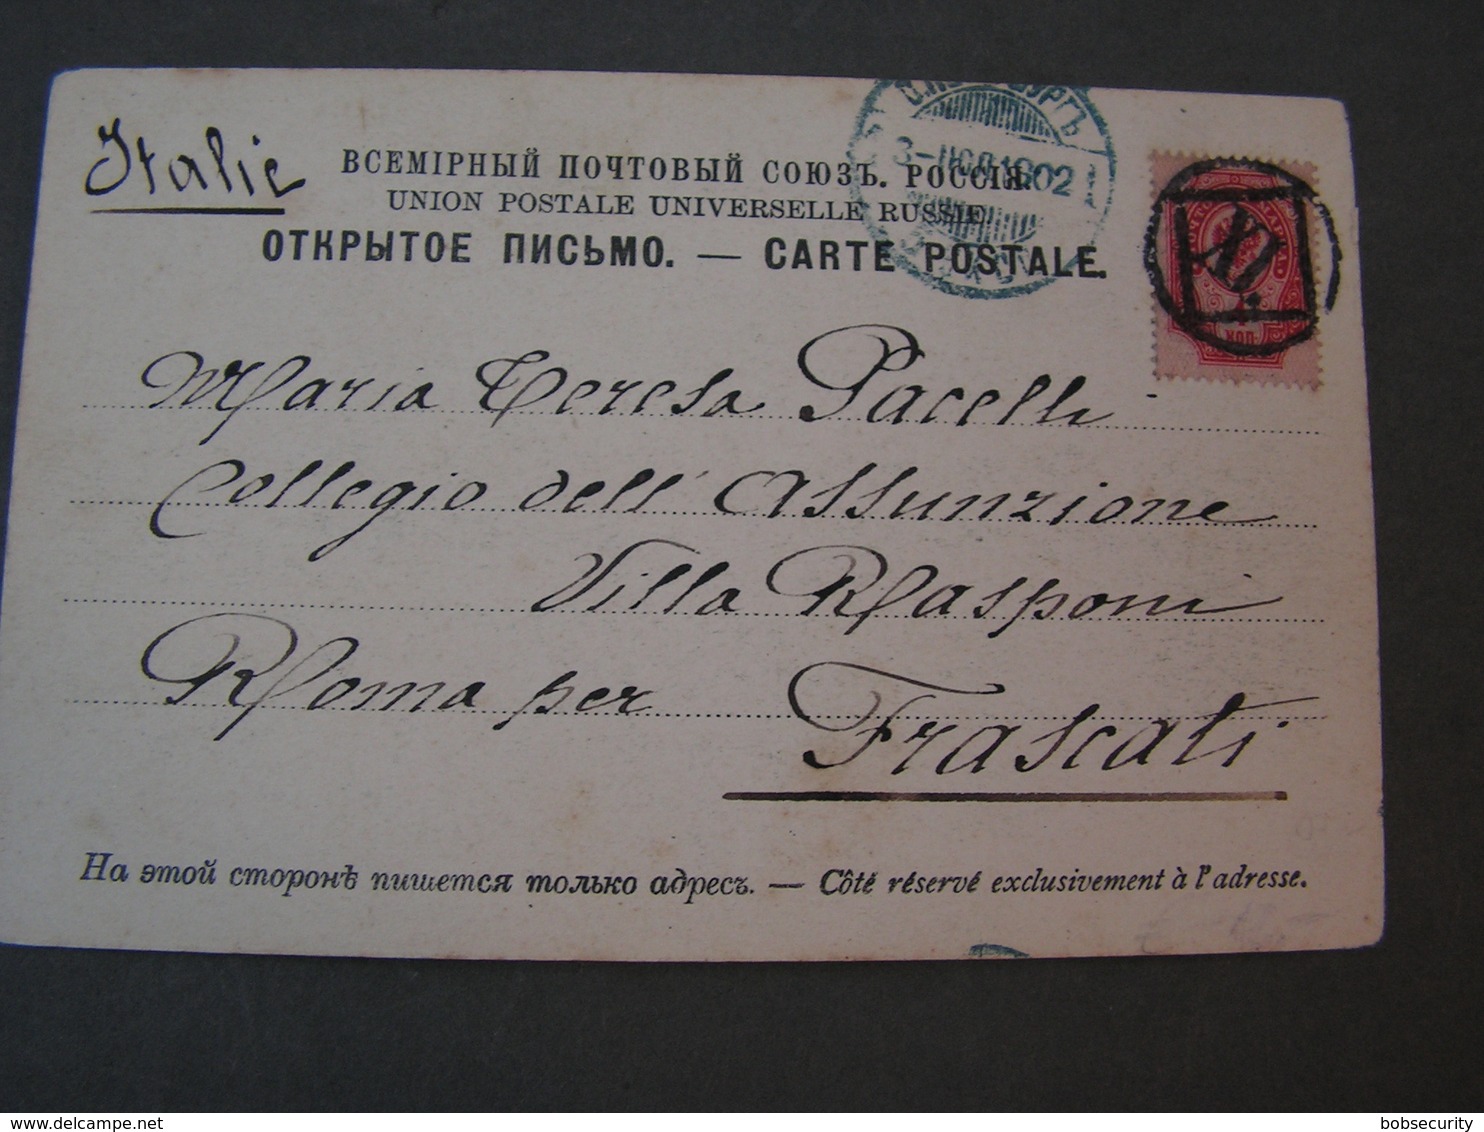 Italie
ВСЕМІРНЫЙ ПОЧТОВЫЙ СОЮЗЪ. РОССІЯ.
UNION POSTALE UNIVERSELLE RUSSIE.
ОТКРЫТОЕ ПИСЬМО. — CARTE POSTALE.
1902
КОП.
Maria Teresa Pacelli
Collegio dell' Assunzione
Villa Rasponi
Roma per Frascati
На этой сторонѣ пишется только адресъ. — Côté réservé exclusivement à l'adresse.
bobsecurity